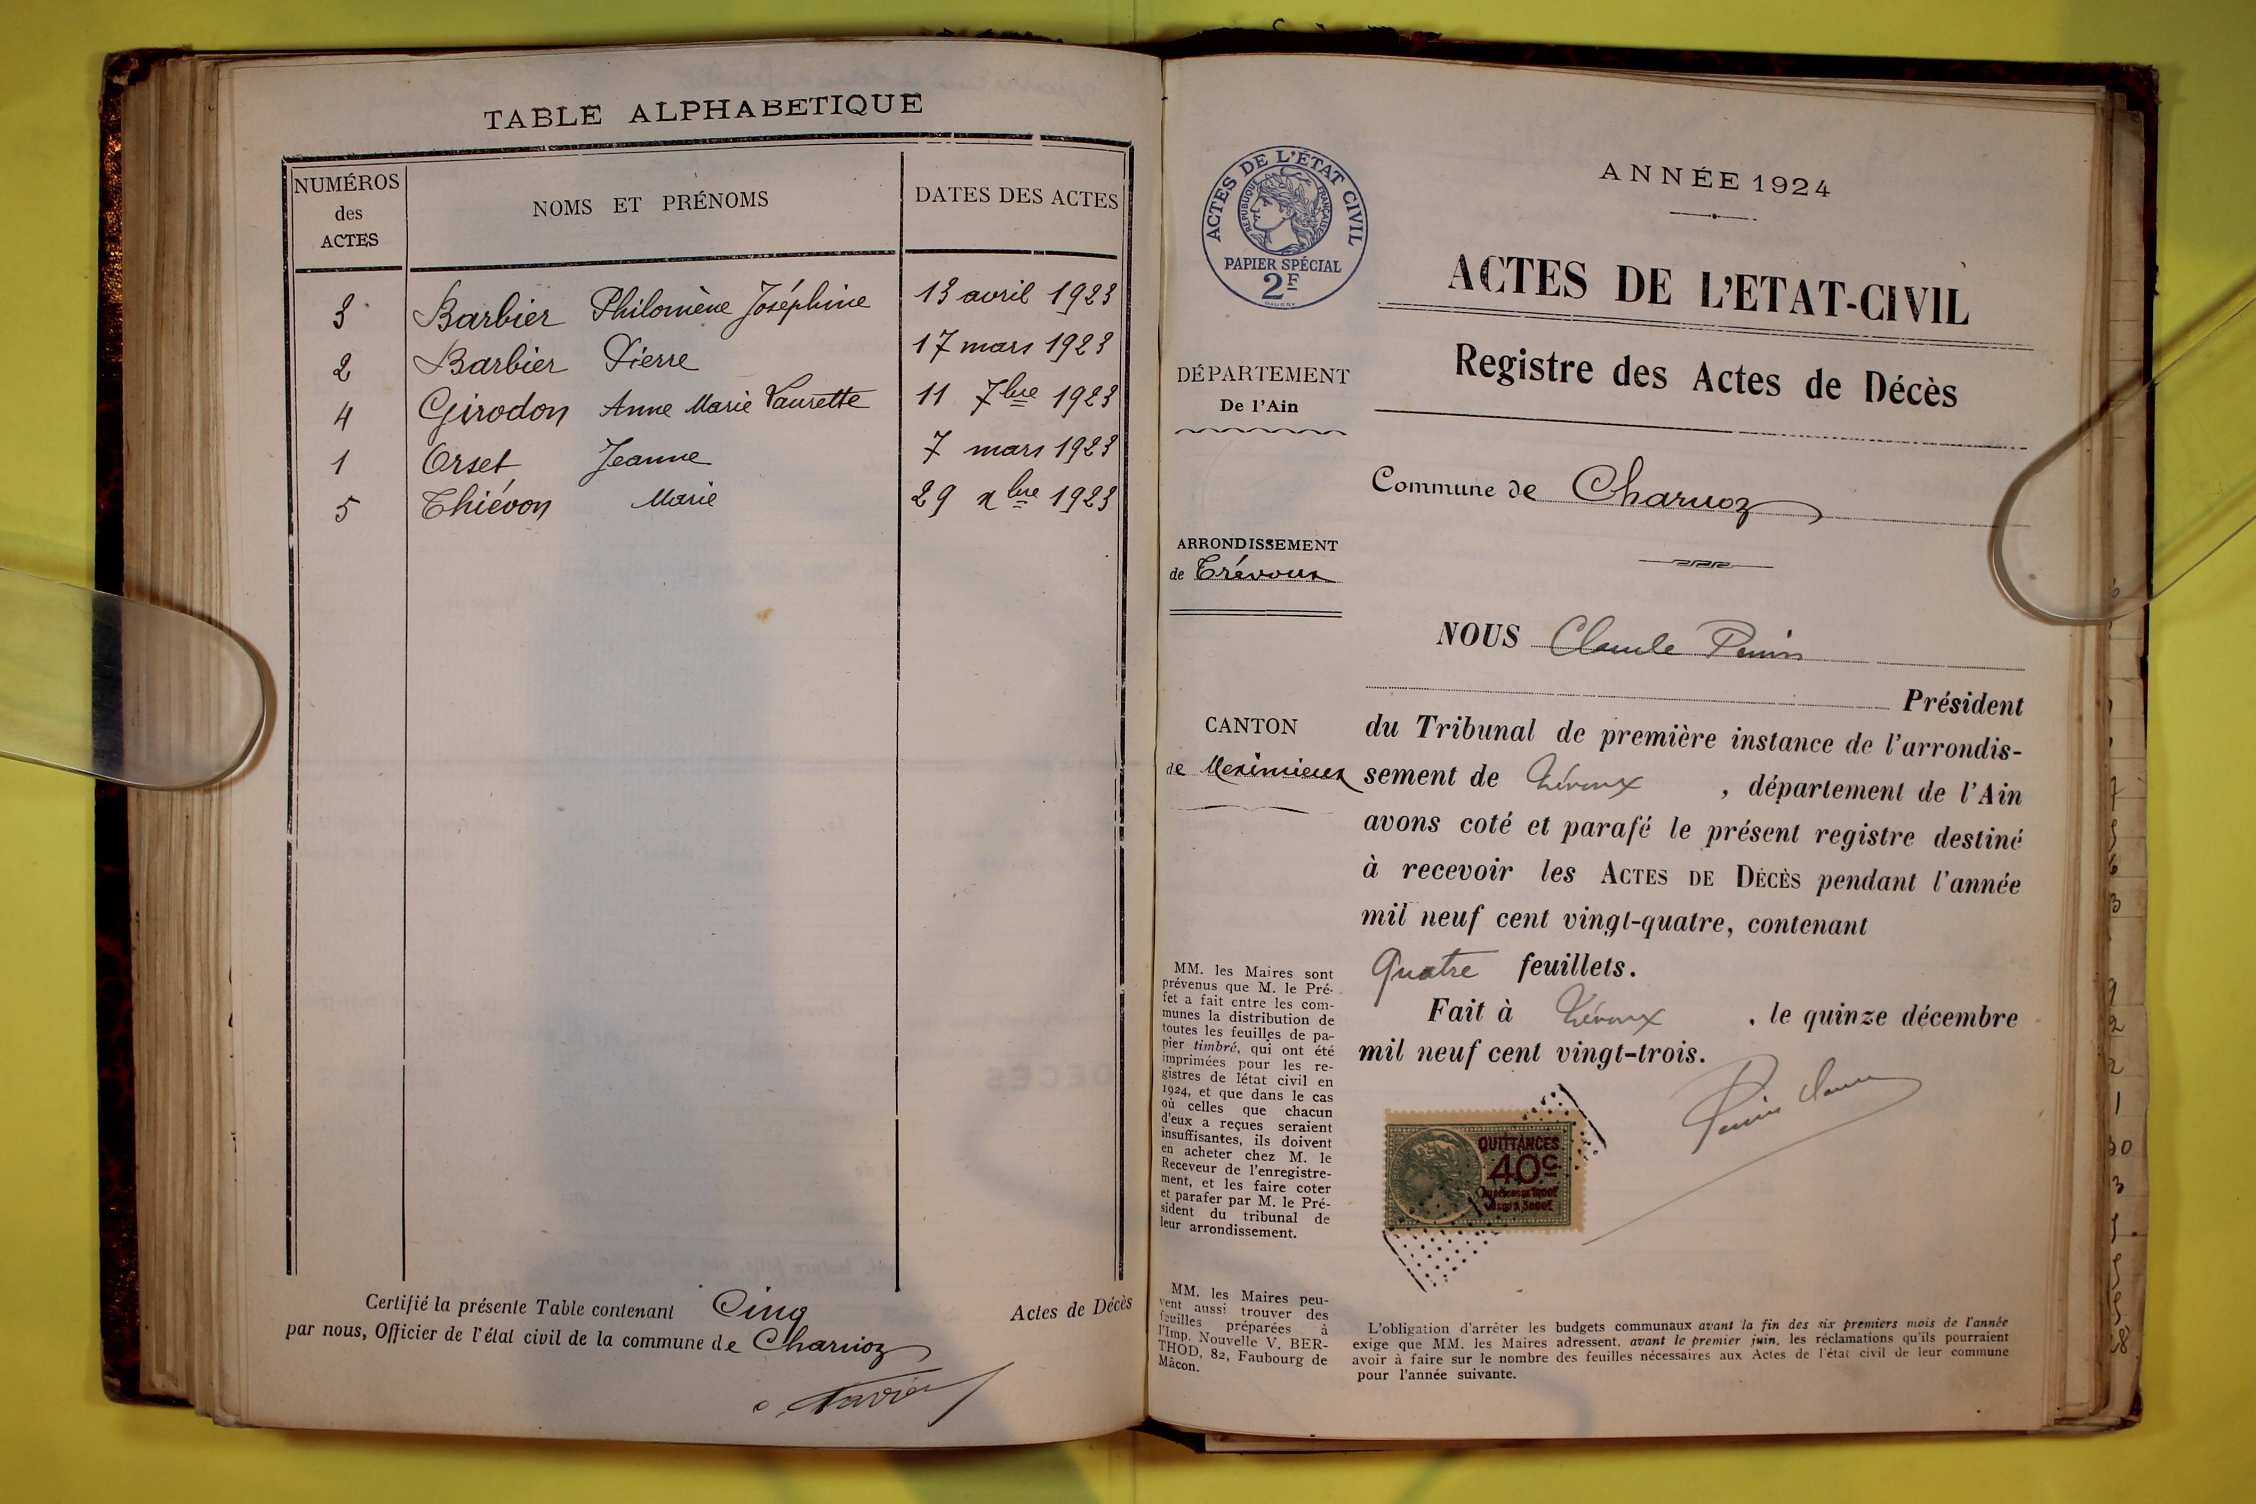 TABLE ALPHABETIQUE
NUMÉROS
des
ACTES
NOMS ET PRÉNOMS
DATES DES ACTES
3 Barbier Philomène Joséphine 13 avril 1923
2 Barbier Pierre 17 mars 1923
4 Girodon Anne Marie Laurette 11 7bre 1923
1 Orset Jeanne 7 mars 1923
5 Thiévon Marie 29 xbre 1923
Certifié la présente Table contenant Cinq Actes de Décès
par nous, Officier de l'état civil de la commune de Charnoz
ACTES DE L'ÉTAT CIVIL
RÉPUBLIQUE FRANÇAISE
PAPIER SPÉCIAL
2F
ANNÉE 1924
ACTES DE L'ETAT-CIVIL
Registre des Actes de Décès
DÉPARTEMENT
De l'Ain
Commune de Charnoz
ARRONDISSEMENT
de Trévoux
CANTON
de Meximieux
NOUS Claude
Président
du Tribunal de première instance de l'arrondis-
sement de Trévoux, département de l'Ain
avons coté et parafé le présent registre destiné
à recevoir les ACTES DE DÉCÈS pendant l'année
mil neuf cent vingt-quatre, contenant
Quatre feuillets.
Fait à Trévoux, le quinze décembre
mil neuf cent vingt-trois.
MM. les Maires sont
prévenus que M. le Pré-
fet a fait entre les com-
munes la distribution de
toutes les feuilles de pa-
pier timbré, qui ont été
imprimées pour les re-
gistres de l'état civil en
1924, et que dans le cas
où celles que chacun
d'eux a reçues seraient
insuffisantes, ils doivent
en acheter chez M. le
Receveur de l'enregistre-
ment, et les faire coter
et parafer par M. le Pré-
sident du tribunal de
leur arrondissement.
MM. les Maires peu-
vent aussi trouver des
feuilles préparées à
l'Imp. Nouvelle V. BER-
THOD, 82, Faubourg de
Mâcon.
QUITTANCES
40c
L'obligation d'arrêter les budgets communaux avant la fin des six premiers mois de l'année
exige que MM. les Maires adressent, avant le premier juin, les réclamations qu'ils pourraient
avoir à faire sur le nombre des feuilles nécessaires aux Actes de l'état civil de leur commune
pour l'année suivante.